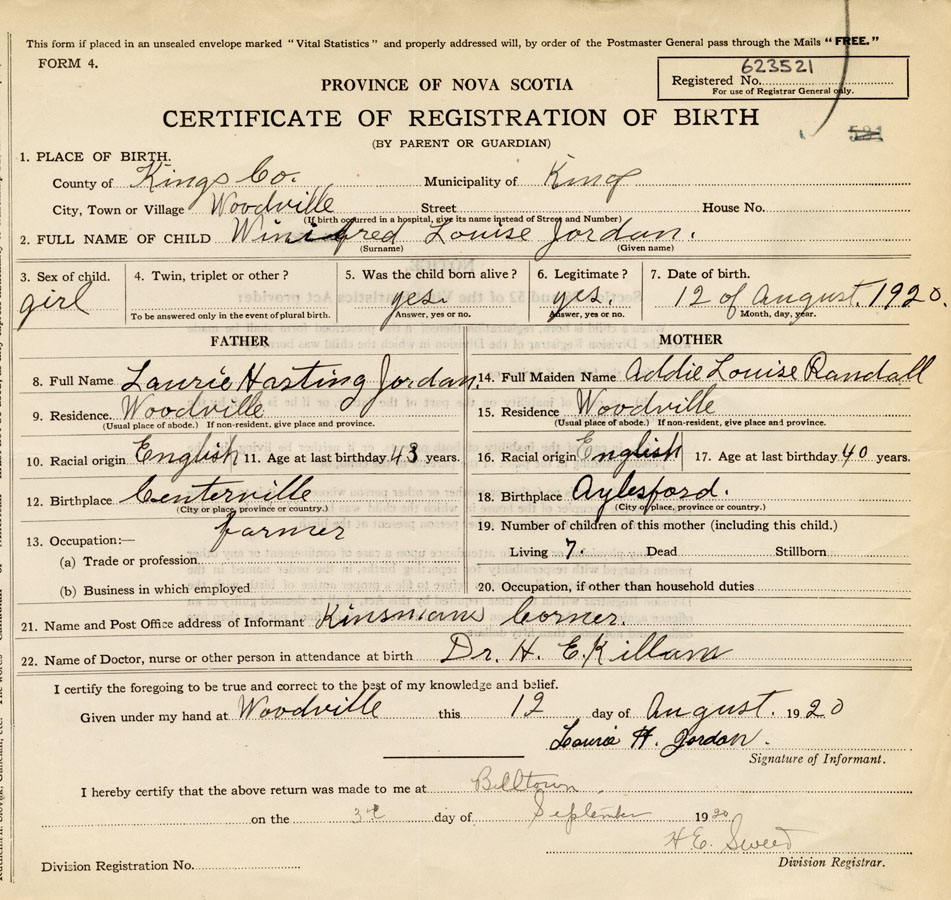 This form if placed in an unsealed envelope marked "Vital Statistics" and properly addressed will, by order of the Postmaster General pass through the Mails "FREE."
FORM 4.
623521
Registered No.
For use of Registrar General only.
PROVINCE OF NOVA SCOTIA
CERTIFICATE OF REGISTRATION OF BIRTH
(BY PARENT OR GUARDIAN)
1. PLACE OF BIRTH.
County of Kings Co. Municipality of King
City, Town or Village Woodville Street House No.
(If birth occurred in a hospital, give its name instead of Street and Number)
2. FULL NAME OF CHILD Winifred Louise Jordan.
(Surname) (Given name)
3. Sex of child. 4. Twin, triplet or other? 5. Was the child born alive? 6. Legitimate? 7. Date of birth.
girl yes. yes. 12 of August. 1920.
To be answered only in the event of plural birth. Answer, yes or no. Answer, yes or no. Month, day, year.
FATHER
8. Full Name Laurie Hasting Jordan.
9. Residence. Woodville
(Usual place of abode.) If non-resident, give place and province.
10. Racial origin English 11. Age at last birthday 43 years.
12. Birthplace Centerville
(City or place, province or country.)
13. Occupation:— farmer
(a) Trade or profession
(b) Business in which employed
MOTHER
14. Full Maiden Name Addie Louise Randall
15. Residence Woodville
(Usual place of abode.) If non-resident, give place and province.
16. Racial origin English 17. Age at last birthday 40 years.
18. Birthplace Aylesford.
(City or place, province or country.)
19. Number of children of this mother (including this child.)
Living 7. Dead Stillborn
20. Occupation, if other than household duties
21. Name and Post Office address of Informant Kinsmans Corner.
22. Name of Doctor, nurse or other person in attendance at birth Dr. H. E. Killam
I certify the foregoing to be true and correct to the best of my knowledge and belief.
Given under my hand at Woodville this 12 day of August. 1920
Laurie H. Jordan.
Signature of Informant.
I hereby certify that the above return was made to me at Billtown
on the day of September 1920
H E. Sweed
Division Registrar.
Division Registration No.